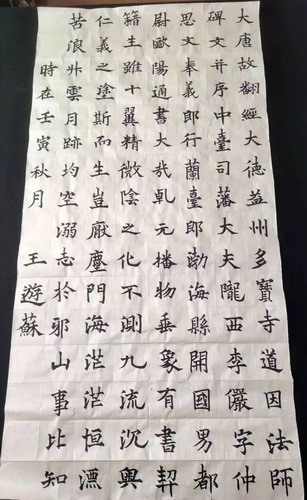 大唐故翻經大德益州多寶寺道因法師
碑文并序中臺司藩大夫隴西李儼字仲
思文奉義郎行蘭臺郎渤海縣開國男都
尉歐陽通書大哉乹元播物垂象有書契
籍生雖十翼精微陰之化不測九流沉興
仁義之塗斯而生豈厭塵門海茫茫恒漂
苦浪舛雲月跡均空溺志於邪山事比知
時在壬寅秋月 王遊蘇